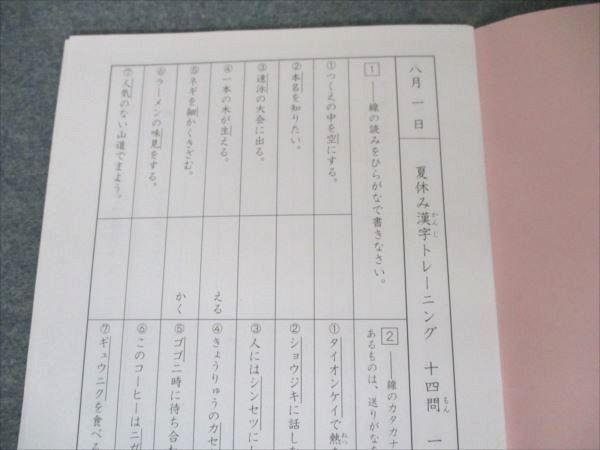 八月一日　夏休み漢字トレーニング　十四問　一
かんじ
もん
1 ――線の読みをひらがなで書きなさい。
①つくえの中を空にする。
②本名を知りたい。
③遠泳の大会に出る。
④一本の木が生える。
える
⑤ネギを細かくきざむ。
かく
⑥ラーメンの味見をする。
⑦人気のない山道でまよう。
2 ――線のカタカナ
あるものは、送りがな
①タイオンケイで熱
ねつ
②ショウジキに話し
③人にはシンセツに
④きょうりゅうのカセ
⑤ゴゴ二時に待ち合わ
⑥このコーヒーはニガ
⑦ギュウニクを食べ